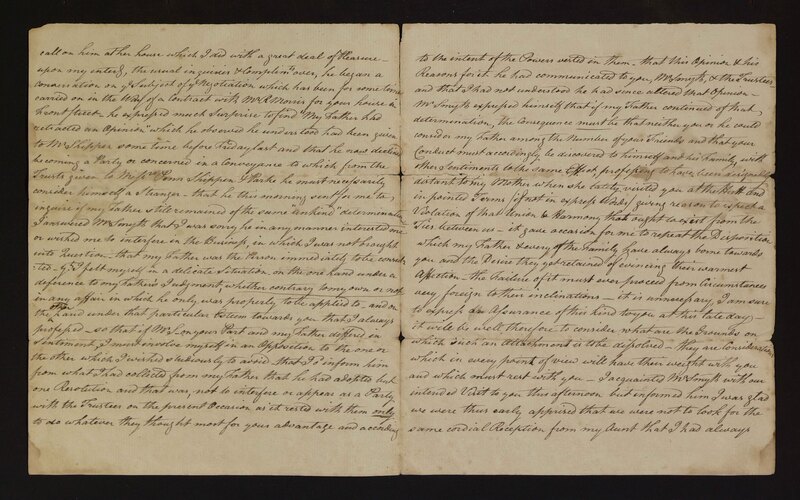 call on him at her house which I did with a great deal of Pleasure —
upon my interg, the usual inquiries & Complimts over, he began a
conversation on ye Subject of ye Negotiation which has been for some time
carried on in the Way of a Contract with Mr R Morris for your house in
front street — he expressed much Surprise to find My Father had
retracted an Opinion which he observed he understood had been given
to Mr Shippen some time before Friday last and that he now declined
becoming a Party or concerned in a Conveyance to which from the
Trusts given to Messrs Penn Shippen & Parke he must necessarily
consider himself a Stranger — that he this morning sent for me to
inquire if my Father still remained of the same determination
I answered Mr Smyth that I was sorry he in any manner interested me
or wished me to interfere in the Business, in which I was not brought
into Question — that my Father was the Person immediately to be consul
ted — yt I felt myself in a delicate Situation, on the one hand under a
deference to my Father's Judgment, whether contrary to my own or not
in any affair in which he only was properly to be applied to — and on
the other hand under that particular Esteem towards you that I always
professed — so that if Mr L on your Part and my Father differed in
Sentiment, I must involve myself in an Opposition to the one or
the other which I wished studiously to avoid — that I inform him
from what I had collected from my Father that he had adopted but
one Resolution and that was, not to interfere or appear as a Party
with the Trustees on the present Occasion as it rested with them only
to do whatever they thought most for your advantage and according
to the intent of the Powers vested in them — that this Opinion & his
Reasons for it he had communicated to you, Mr Smyth, & the Trustees
and that I had not understood he had since altered that Opinion —
Mr Smyth expressed himself that if my Father continued of that
determination, the Consequence must be that neither you or he could
consider my Father among the Number of your Friends and that your
Conduct must accordingly be discovered to himself and his Family, with
other Sentiments to the same Effect, professing to have been
distant to my Mother when she lately visited you at the and
in pointed Terms if not in express Words, giving reason to expect a
Violation of that Union & Harmony that ought to exist from the
Ties between us — it gave occasion for me to repeat the Disposition
which my Father & every of the Family have always borne towards
you and the Desire they yet retained of evincing their warmest
Affection — the Failure of it must ever proceed from Circumstances
very foreign to their inclinations — it is unnecessary I am sure
to express an Assurance of this kind to you at this late day —
it will be well therefore to consider what are the Grounds on
which such an Attachment is to be dissolved — they are considerations
which in every point of view will have their weight with you
and which must rest with you — I acquainted Mr Smyth with our
intended Visit to you this afternoon but informed him I was glad
we were thus early apprised that we were not to look for the
same cordial Reception from my Aunt that I had always